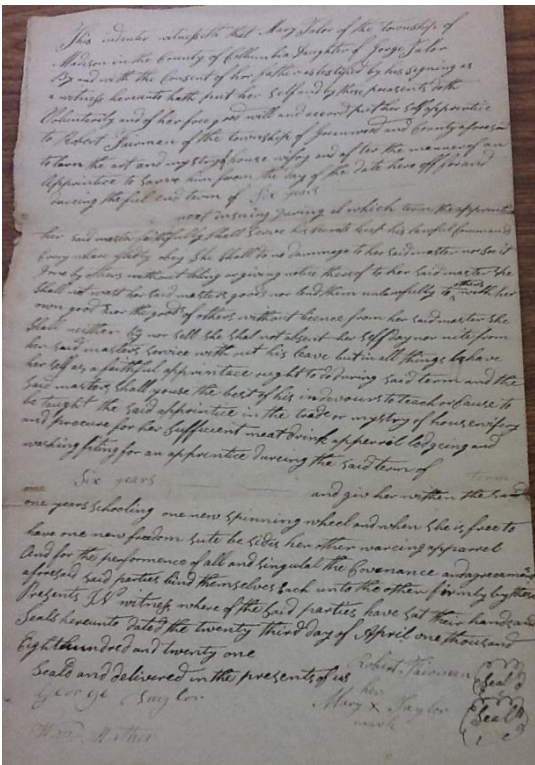 This indenter witnesseth that Mary Talor of the township of
Madison in the County of Collumbia Daughter of Jorge Talor
By and with the Consent of her father as testified by his signing as
a witness hereunto hath put her self and by these presents doth
Voluntarily and of her free good will and accord put her self apprentice
to Robert Fairmen of the township of Greenwood and County aforesaid
to learn the art and mystory of house wifry and after the manner of an
Apprintice to sarve him from the day of the date here off for and
dureing the full end term of Six years
next insuing dureing al which term the apprintice
her said master faithfully shall serve his secrets keep his lawful Commands
Every where gladly obey she shall do no dammage to her said master nor see it
done by others without teling or giving notice thereof to her said master She
Shall not wast her said masters goods nor lend them unlawfully to others with her
own goods nor the goods of others without licence from her said master She
Shall neither by nor sell she shal not absent her self day nor nite from
her said masters service with out his leave but in all things behave
her self as a faithful apprintice ought to do during said term and the
said masters shall youse the best of his indevours to teach or Cause to
be taught the said apprintice in the trade or mystry of housewifery
and procure for her sufficcent meat drink apperril lodgeing and
washing fiting for an apprentice dureing the said term of
Six years term
and giv her within the said
one years schooling one new spinning wheel and when she is free to
have one new freedom sute be sides her other wareing apparrel
And for the performence of all and singulal the Covenance and agreements
aforesaid said parties bind themselves Each unto the other firmly by these
Presents IN witness where of the said parties have sat their hands and
Seals hereunto dated the twenty third day of April one thousand
Eight hundred and twenty one
Seald and delivered in the presents of us Robert Fairmen Seal
George Taylor her
Mary X Taylor Seal
mark
Wm Mather